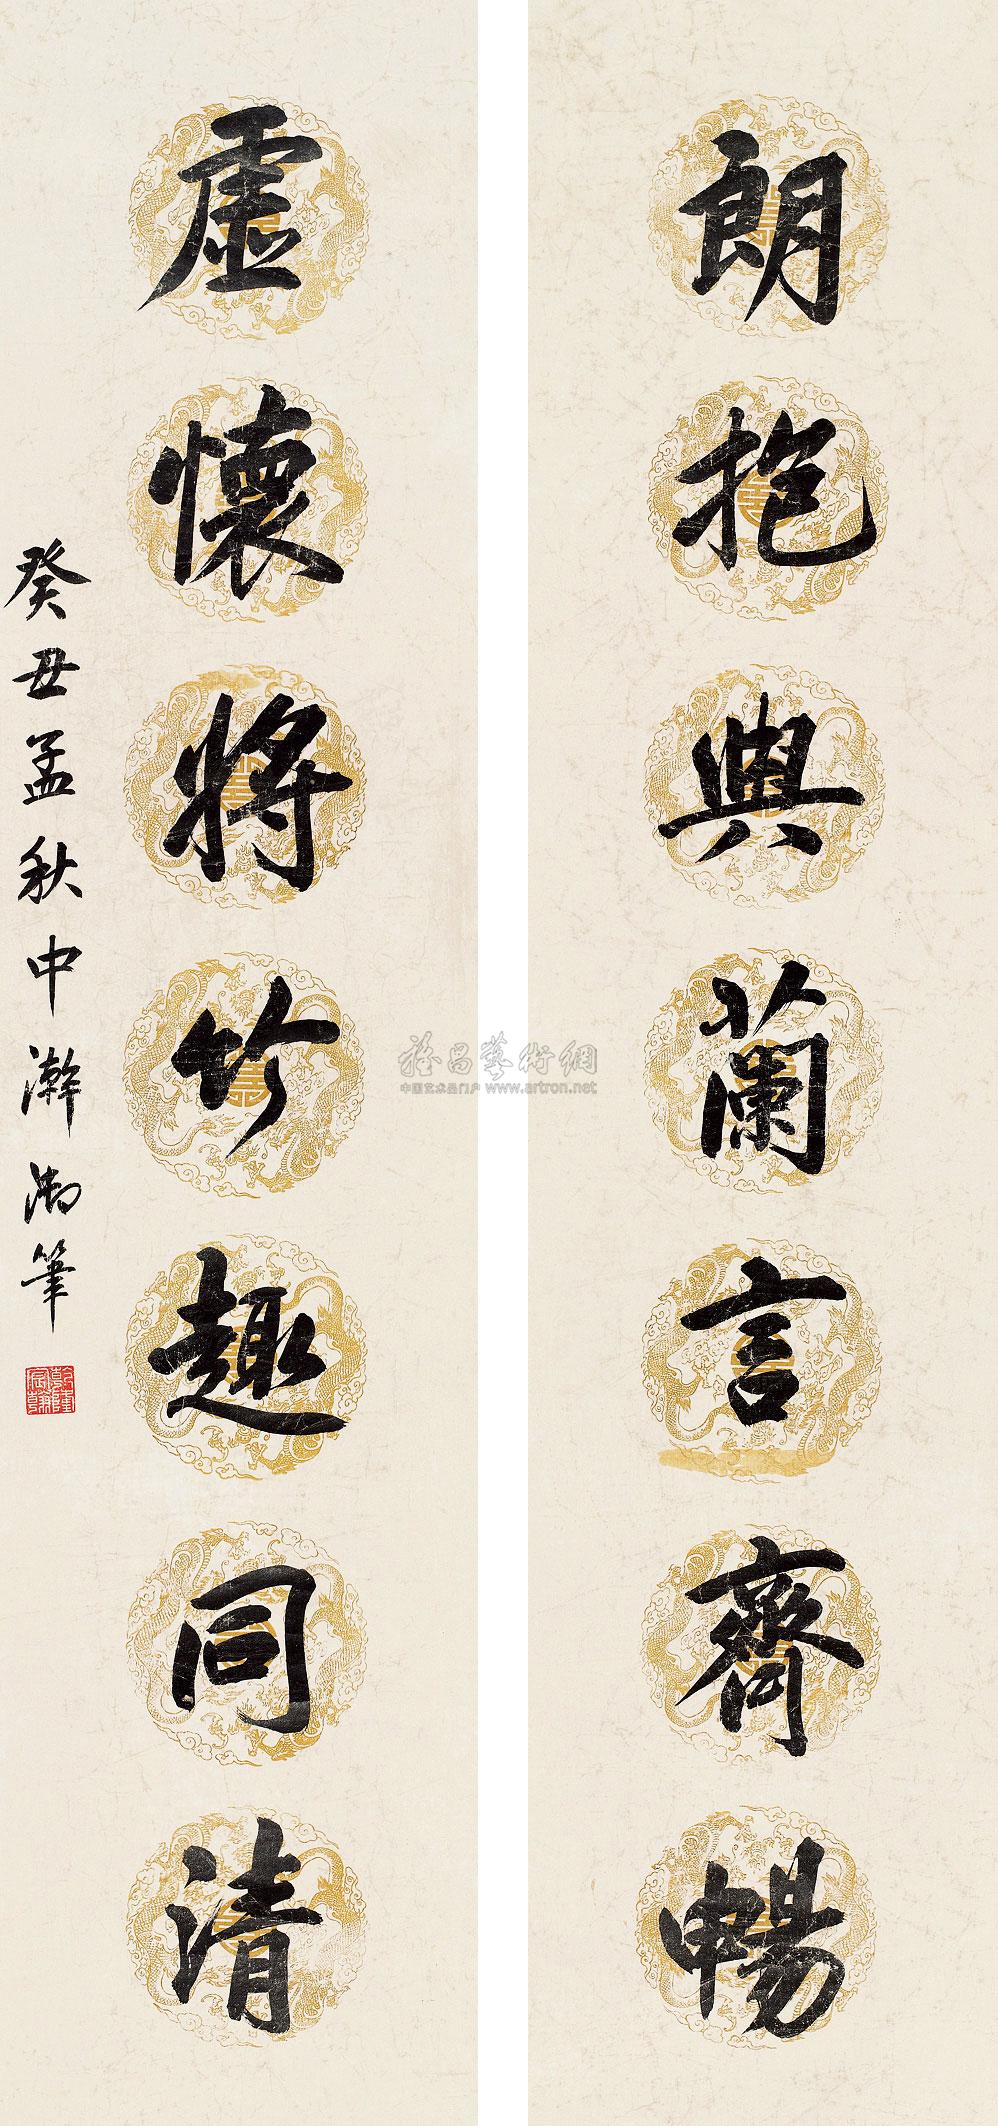 朗抱與蘭言齊暢
虛懷將竹趣同清
癸丑孟秋中澣御筆
乾隆宸翰
雅昌藝術網
中国艺术品门户 www.artron.net